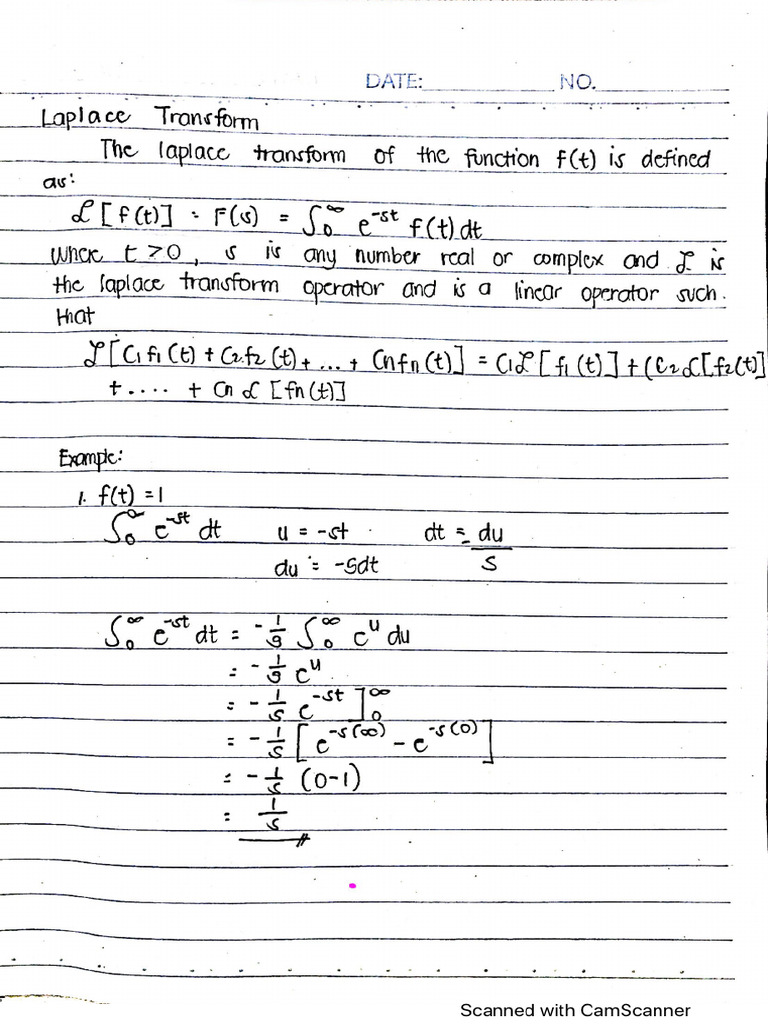 DATE: NO.
Laplace Transform
The laplace transform of the function f(t) is defined
as:
ℒ[f(t)] = F(s) = ∫₀^∞ e^-st f(t) dt
where t > 0, s is any number real or complex and ℒ is
the laplace transform operator and is a linear operator such
that
ℒ[C₁f₁(t) + C₂f₂(t) + ... + Cnfn(t)] = C₁ℒ[f₁(t)] + (C₂ℒ[f₂(t)]
+ .... + Cn ℒ [fn(t)]
Example:
1. f(t) = 1
∫₀^∞ e^-st dt u = -st dt = - du/s
du = -sdt
∫₀^∞ e^-st dt = -1/s ∫₀^∞ e^u du
= -1/s e^u
= -1/s e^-st ]₀^∞
= -1/s [e^-s(∞) - e^-s(0)]
= -1/s (0-1)
= 1/s
Scanned with CamScanner